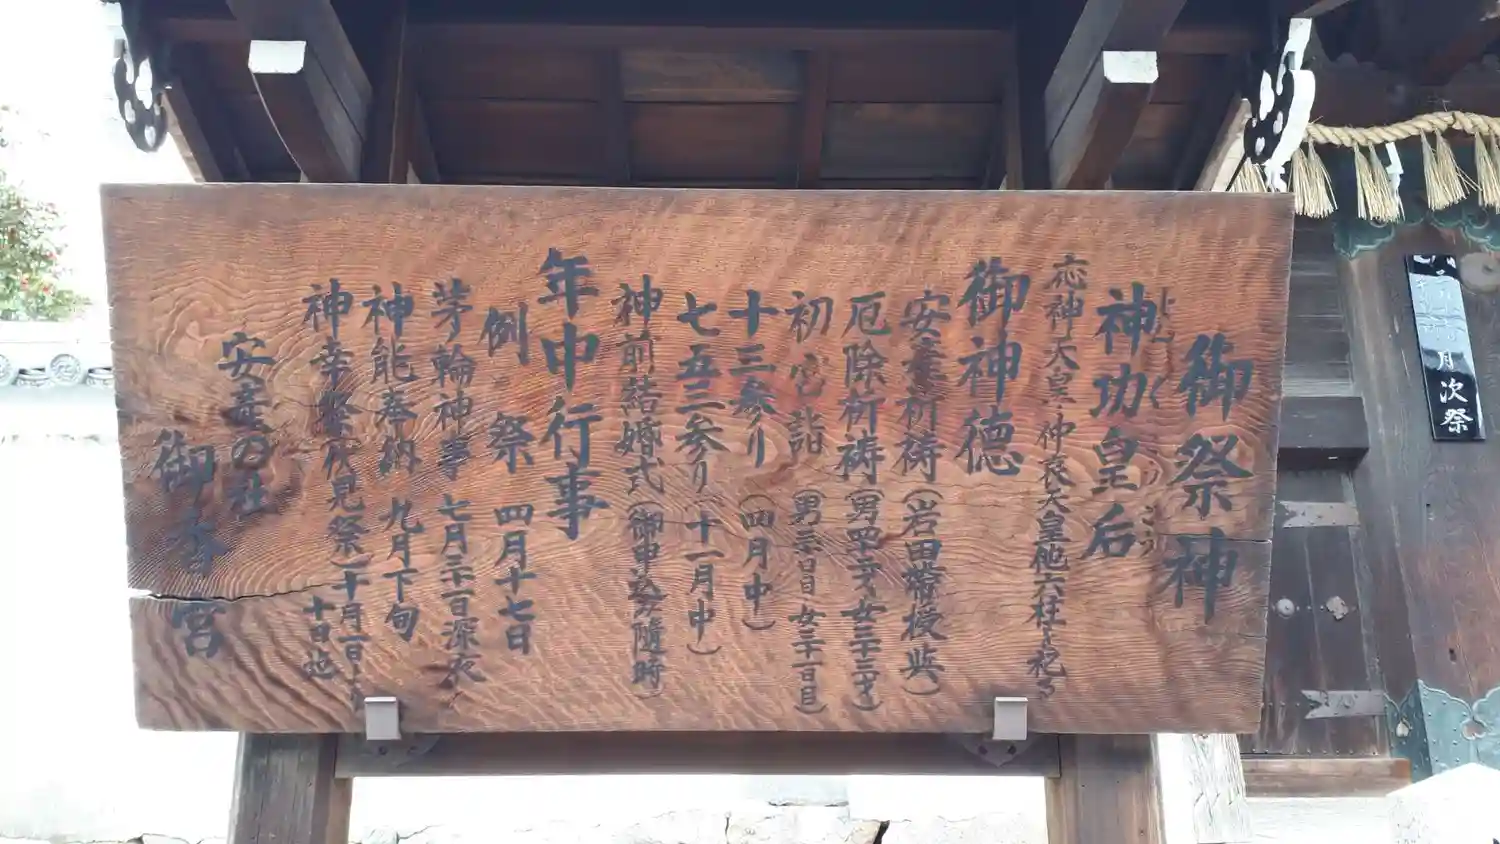 御祭神
神功皇后
じんぐうこうごう
応神天皇 仲哀天皇他六柱を祀る
御神徳
安産祈祷(岩田帯授与)
厄除祈祷(男四二才女三十三才)
初宮詣(男三十日目女三十一日目)
十三参り(四月中)
七五三参り(十一月中)
神前結婚式(御申込み隨時)
年中行事
例祭 四月十七日
茅輪神事 七月三十一日深夜
神能奉納 九月下旬
神幸祭(伏見祭)十月一日より十日迄
安産の社
御香宮
月次祭